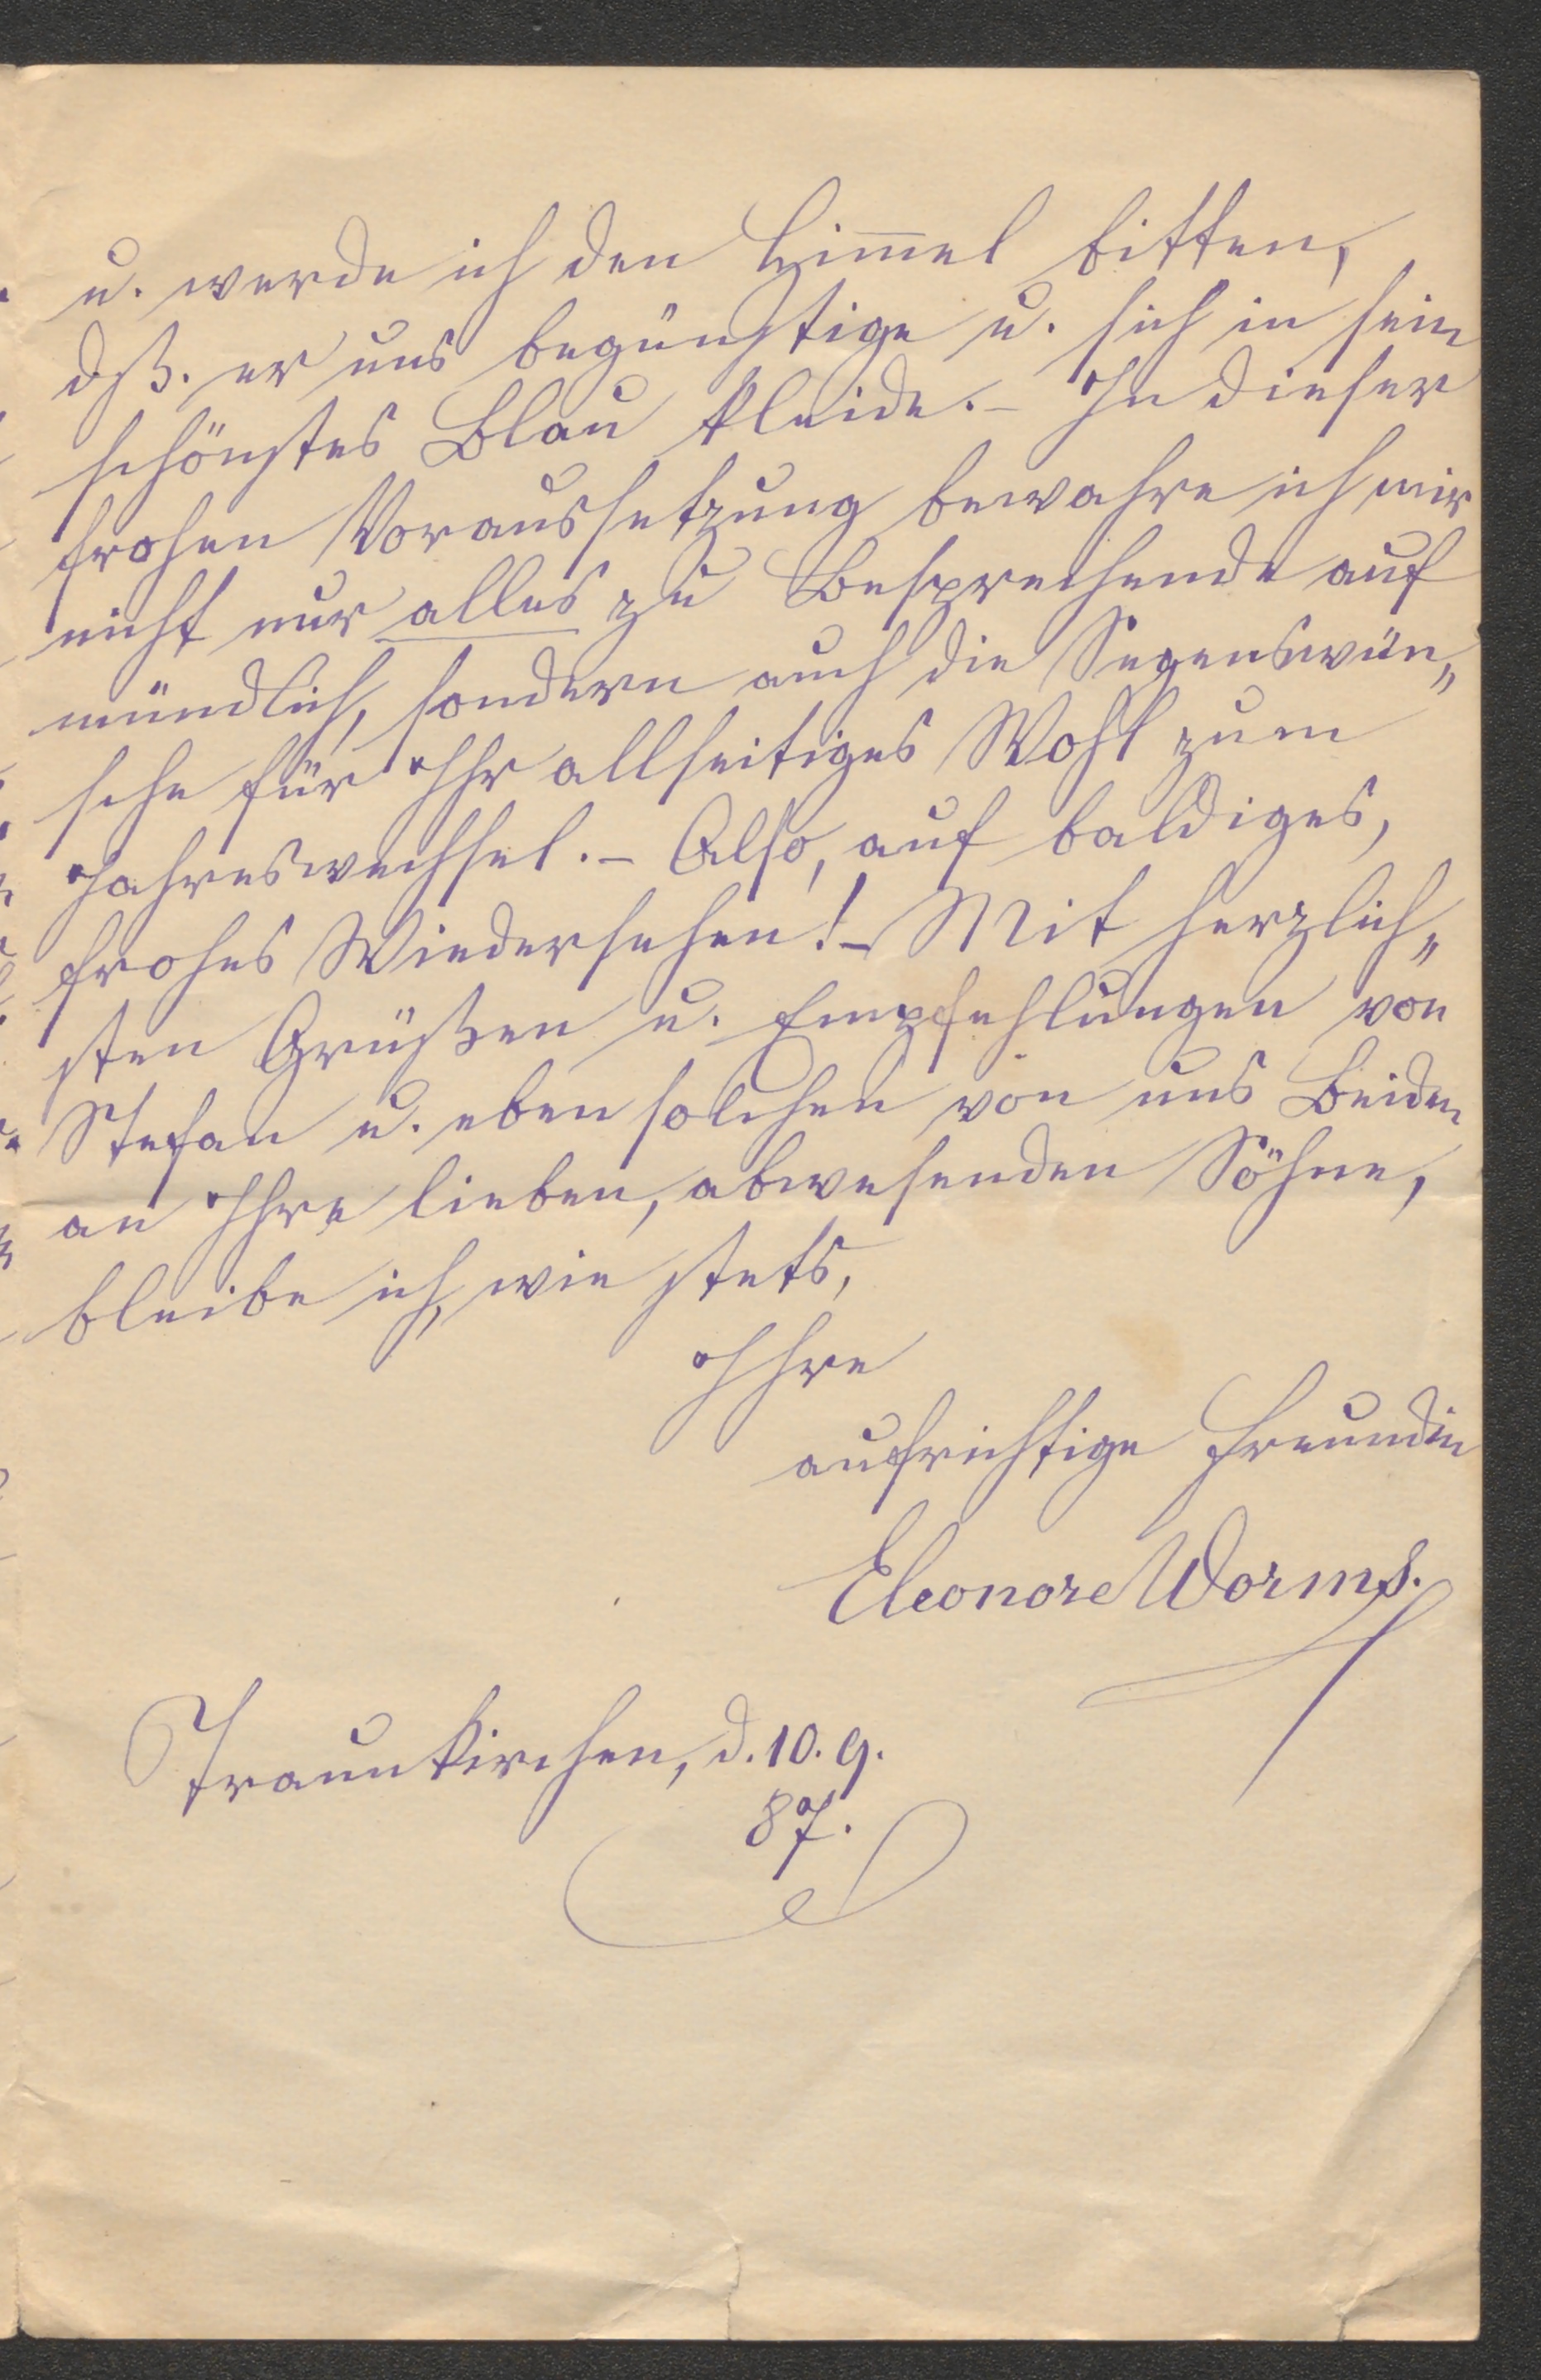 u. werde ich den Him̅el bitten,
dß. er uns begünstige u. sich in sein
schönstes Blau kleide. – In dieser
frohen Voraussetzung bewahre ich mir
nicht nur alles zu Besprechende auf
mündlich, sondern auch die Segenswün„
sche für Ihr allseitiges Wohl zum
Jahreswechsel. – Also, auf baldiges,
frohes Wiedersehen! – Mit herzlich„
sten Grüßen u. Empfehlungen von
Stefan u. eben solchen von uns Beiden
an Ihre lieben, abwesenden Söhne,
bleibe ich, wie stets,
Ihre
aufrichtige Freundin
Eleonore Worms.
Traunkirchen, d. 10. 9.
87.